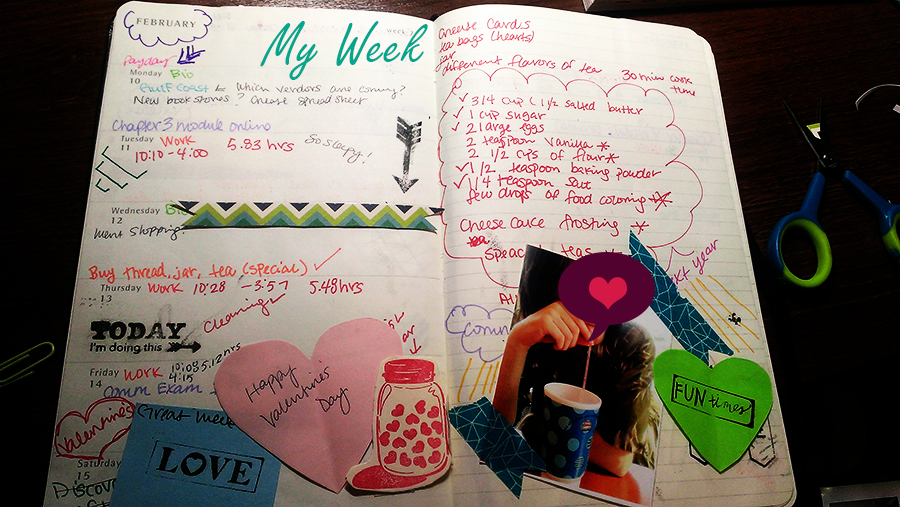 FEBRUARY
My Week
week
Payday
Monday Bio
10
Gulf Coast - Which vendors are coming?
New book stores? Cheese Spreadsheet
Chapter 3 module online
Tuesday Work
11 10:10 - 4:00 5.83 hrs So sleepy!
Wednesday
12
Went Shopping!
Buy thread, jar, tea (special) ✓
Thursday Work 10:28 - 3:57 5.48 hrs
13
Cleaning ✓
TODAY
I'm doing this
Friday Work 10:03 5.12 hrs
14 4:15
Comm Exam
Valentines
Great week
Happy
Valentines
Day
LOVE
Saturday
15
Discov
Cheese Cards
tea bags (hearts)
jar
different flavors of tea
30 min cook
time
✓ 3/4 cup (1 1/2 salted butter
✓ 1 cup sugar
✓ 2 large eggs
2 teaspoon vanilla *
2 1/2 cups of flour *
✓ 1/2 teaspoon baking powder
✓ 1/4 teaspoon salt
few drops of food coloring *
Cheese cake frosting *
Special teas
xt year
Comm
FUN times